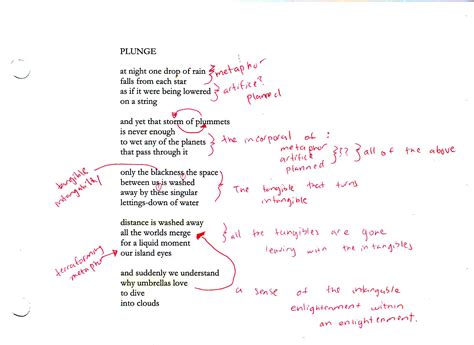 PLUNGE
at night one drop of rain
falls from each star
as if it were being lowered
on a string
metaphor
artifice?
planned
and yet that storm of plummets
is never enough
to wet any of the planets
that pass through it
the incorporal of:
metaphor
artifice
planned
}?? all of the above
only the blackness the space
between us is washed
away by these singular
lettings-down of water
tangible
intangibility
The tangible that turns
intangible
distance is washed away
all the worlds merge
for a liquid moment
our island eyes
all the tangibles are gone
leaving with the intangibles
terraforming
metaphor
and suddenly we understand
why umbrellas love
to dive
into clouds
a sense of the intangible
enlightenment within
an enlightenment.